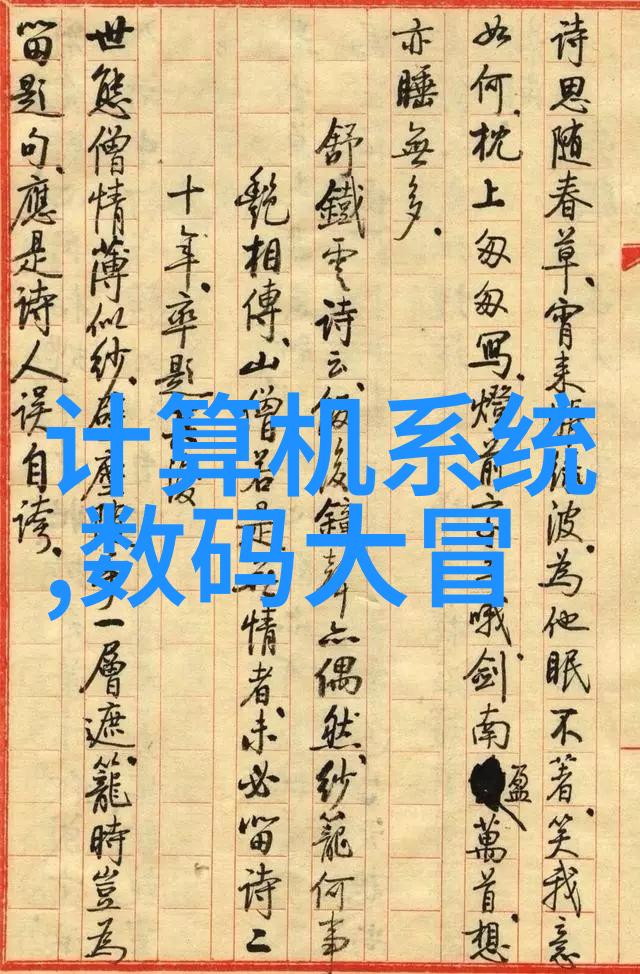 诗思随春草、宵来
波、为他眠不著、笑我意
如何、枕上匆匆写、燈前
哦、剑南盈萬首、想
亦睡無多、
舒鐵雲诗云、
偶然、纱籠何事
艷相傳、山僧若是
情者、未必留诗二
十年、率題
世態僧情薄似纱、
一層遮、籠時豈為
留题句、應是诗人误自誇、
计算机系统
,数码大冒